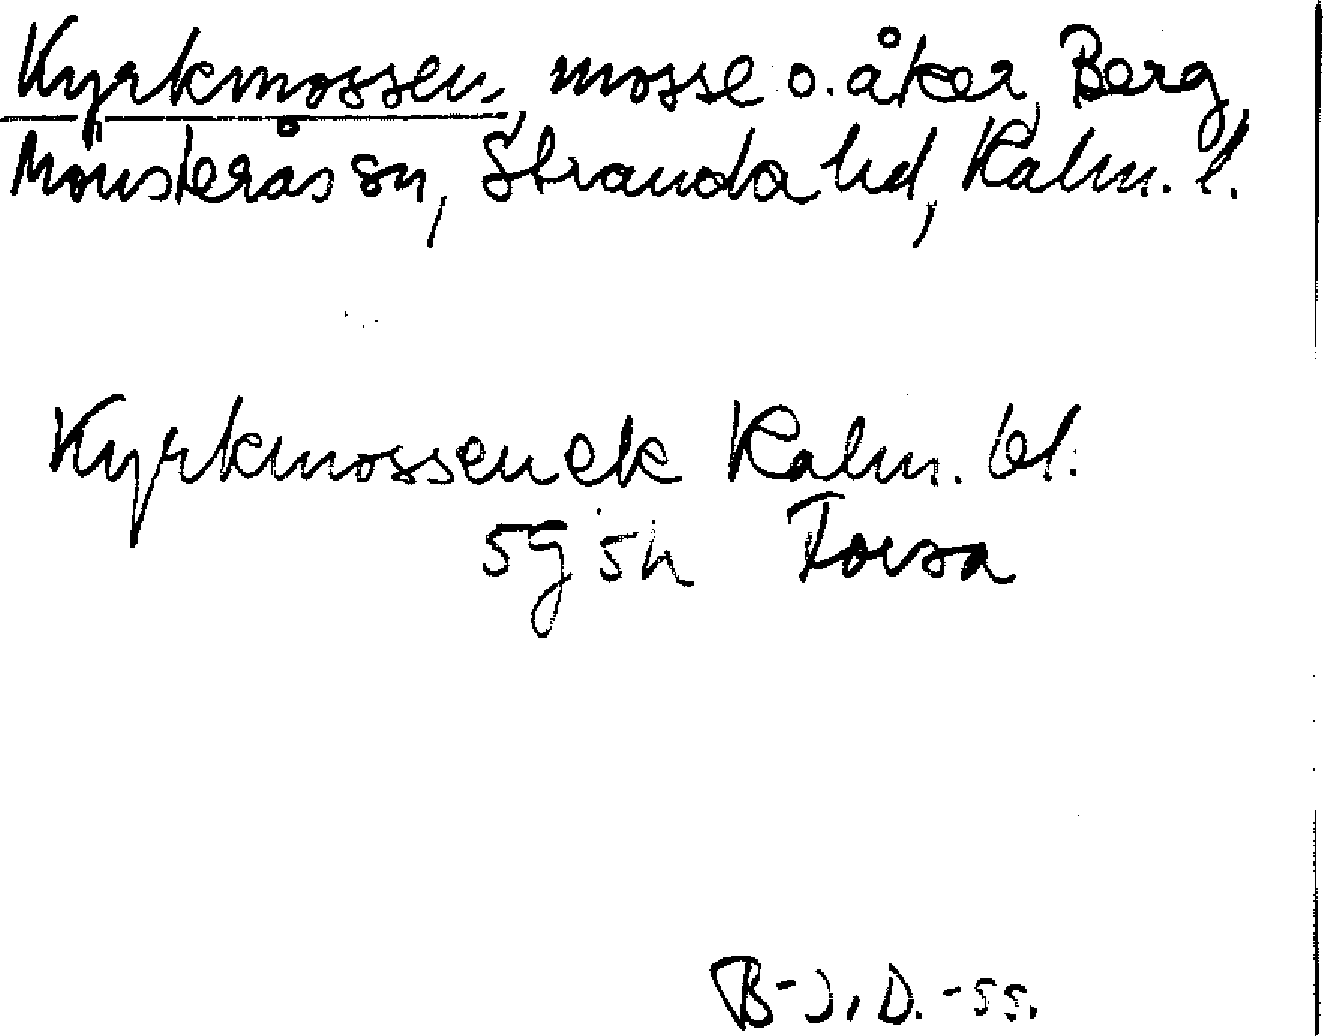 Kyrkmossen, mosse o. åker, Berg,
Mönsterås sn, Stranda hd, Kalm. l.
Kyrkmossen ek Kalm. bl.
5g 5h Forsa
B-J. D. -55.